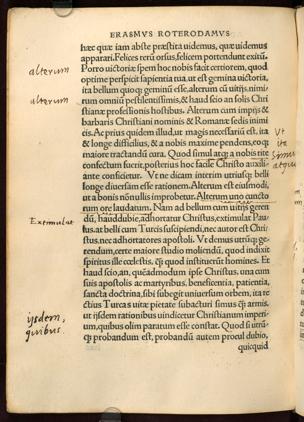 ERASMVS ROTERODAMVS
hæc quæ iam abste præstita uidemus, quæ uidemus
apparari. Felices rerū orsus, felicem portendunt exitū.
Porro uictoriæ spem hoc nobis facit certiorem, quod
optime perspicit sapientia tua, ut est gemina uictoria,
ita bellum quoq; geminū esse, alterum cū uitijs, nimi
rum omniū pestilentissimis, & haud scio an solis Chri
stianæ professionis hostibus. Alterum cum impijs &
barbaris Christiani nominis & Romanæ sedis inimi
cis. Ac prius quidem illud, ut magis necessariū est, ita
& longe difficilius, & a nobis maxime pendens, eo q;
maiore tractandū cura. Quod simul atq; a nobis rite
confectum fuerit, posterius hoc facile Christo auxili-
ante conficietur. Vt ne dicam interim utriusq; belli
longe diuersam esse rationem. Alterum est eiusmodi,
ut a bonis nōnullis improbetur. Alterum uno cuncto
rum ore laudatum. Nam ad bellum cum uitijs geren
dū, haud dubie, adhortatur Christus, extimulat Pau-
lus. at belli cum Turcis suscipiendi, nec autor est Chri
stus, nec adhortatores apostoli. Vt demus utrūq; ge-
rendum, certe maiore studio moliendū, quod indixit
spiritus ille cœlestis, q̄ quod instituerūt homines. Et
haud scio an, quēadmodum ipse Christus, una cum
suis apostolis ac martyribus, beneficentia, patientia,
sancta doctrina, sibi subegit uniuersum orbem, ita re
ctius Turcas uitæ pietate subacturi simus q̄ armis,
ut ijsdem rationibus uindicetur Christianum imperi-
um, quibus olim paratum esse constat. Quod si utrū-
q; probandum est, probandū autem procul dubio,
quicquid
alterum
alterum
Extimulat
ijsdem,
quibus.
Vt
ita
simul
atque